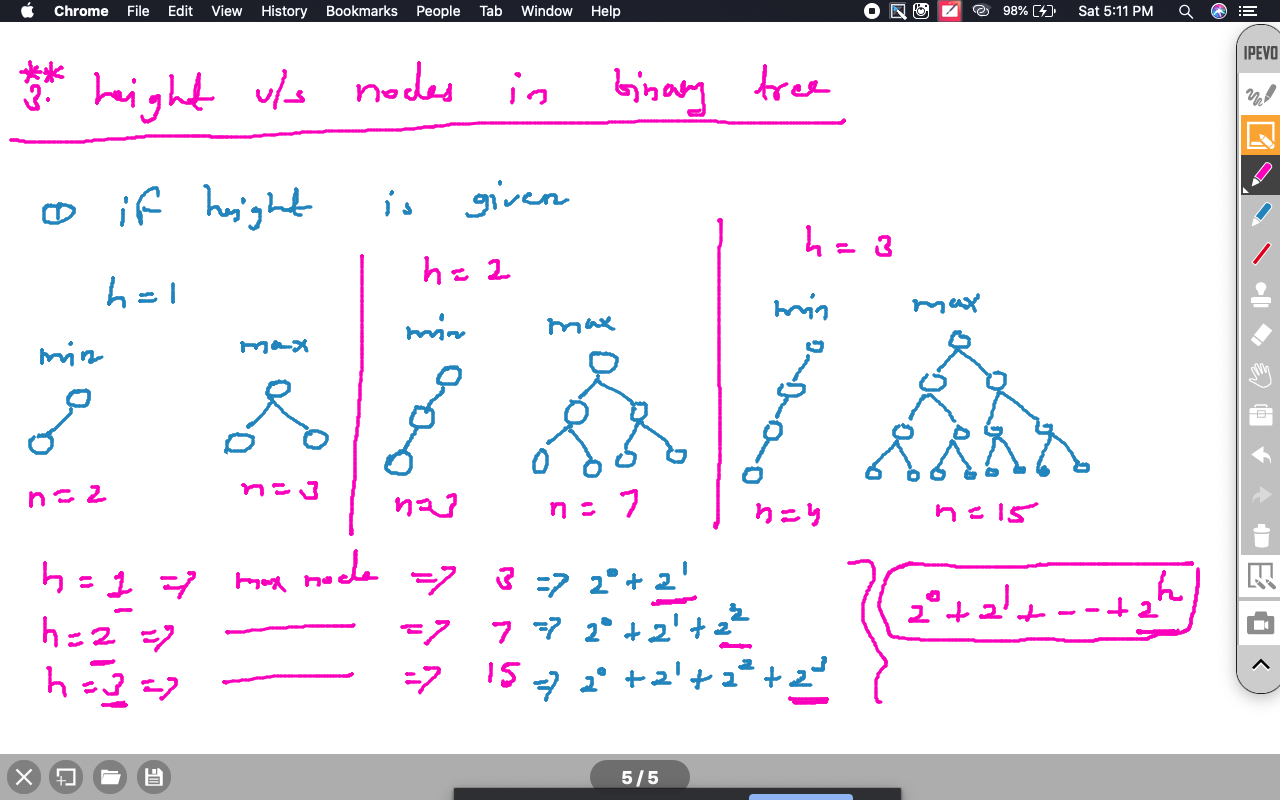 Chrome File Edit View History Bookmarks People Tab Window Help 98% Sat 5:11 PM
IPEVO
**
3. height v/s nodes in binary tree
① if height is given
h = 1
min max
n = 2 n = 3
h = 2
min max
n = 3 n = 7
h = 3
min max
n = 4 n = 15
h = 1 => max node => 3 => 2⁰ + 2¹
h = 2 => ——— => 7 => 2⁰ + 2¹ + 2²
h = 3 => ——— => 15 => 2⁰ + 2¹ + 2² + 2³
2⁰ + 2¹ + - - + 2ʰ
5 / 5